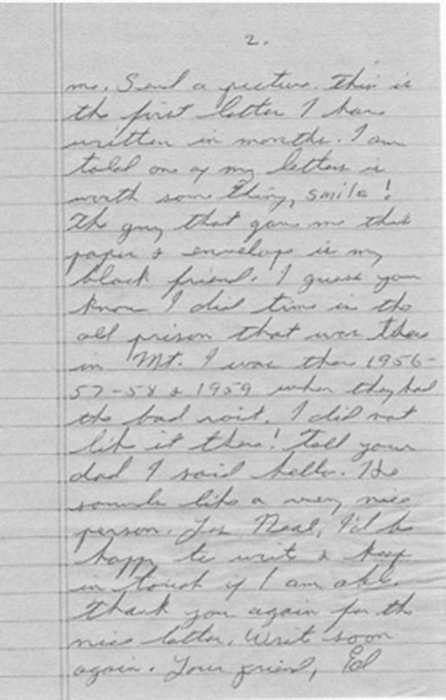 2.
me. Send a picture. This is
the first letter I have
written in months. I am
told one of my letters is
worth something, smile!
The guy that gave me this
paper & envelope is my
black friend. I guess you
know I did time in the
old prison that was there
in Mt. I was there 1956-
57-58 & 1959 when they had
the bad roit. I did not
like it there! Tell your
dad I said hello. He
sounds like a very nice
person. Yes Neal, I'd be
happy to writ & keep
in touch if I am able.
Thank you again for the
nice letter. Writ soon
again. Your friend, Ed